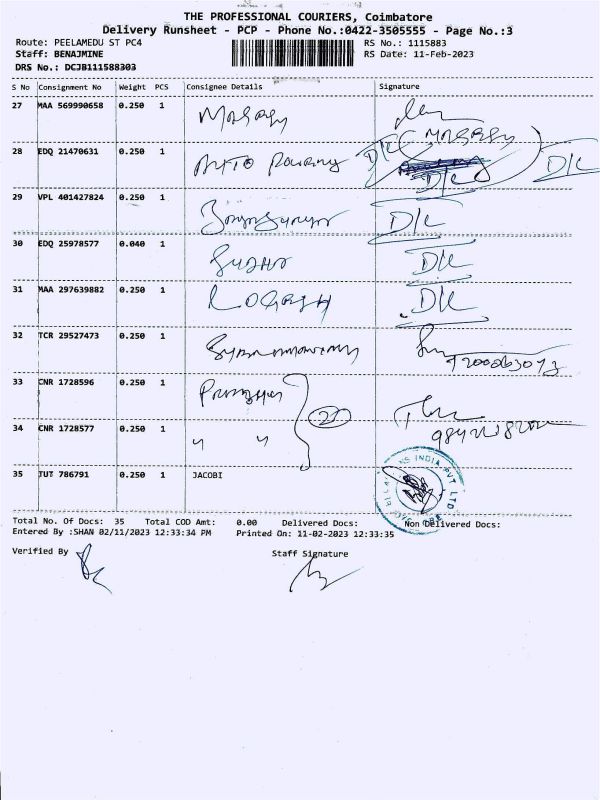 THE PROFESSIONAL COURIERS, Coimbatore
Delivery Runsheet - PCP - Phone No.:0422-3505555 - Page No.:3
Route: PEELAMEDU ST PC4
RS No.: 1115883
Staff: BENAJMINE
RS Date: 11-Feb-2023
DRS No.: DCJB111588303
S No Consignment No Weight PCS Consignee Details Signature
27 MAA 569990658 0.250 1
28 EDQ 21470631 0.250 1 D/C
29 VPL 401427824 0.250 1 D/C
30 EDQ 25978577 0.040 1 D/C
31 MAA 297639882 0.250 1 LOGESH D/C
32 TCR 29527473 0.250 1
33 CNR 1728596 0.250 1
34 CNR 1728577 0.250 1 〃 〃
35 TUT 786791 0.250 1 JACOBI
Total No. Of Docs: 35 Total COD Amt: 0.00 Delivered Docs: Non Delivered Docs:
Entered By :SHAN 02/11/2023 12:33:34 PM Printed On: 11-02-2023 12:33:35
Verified By Staff Signature